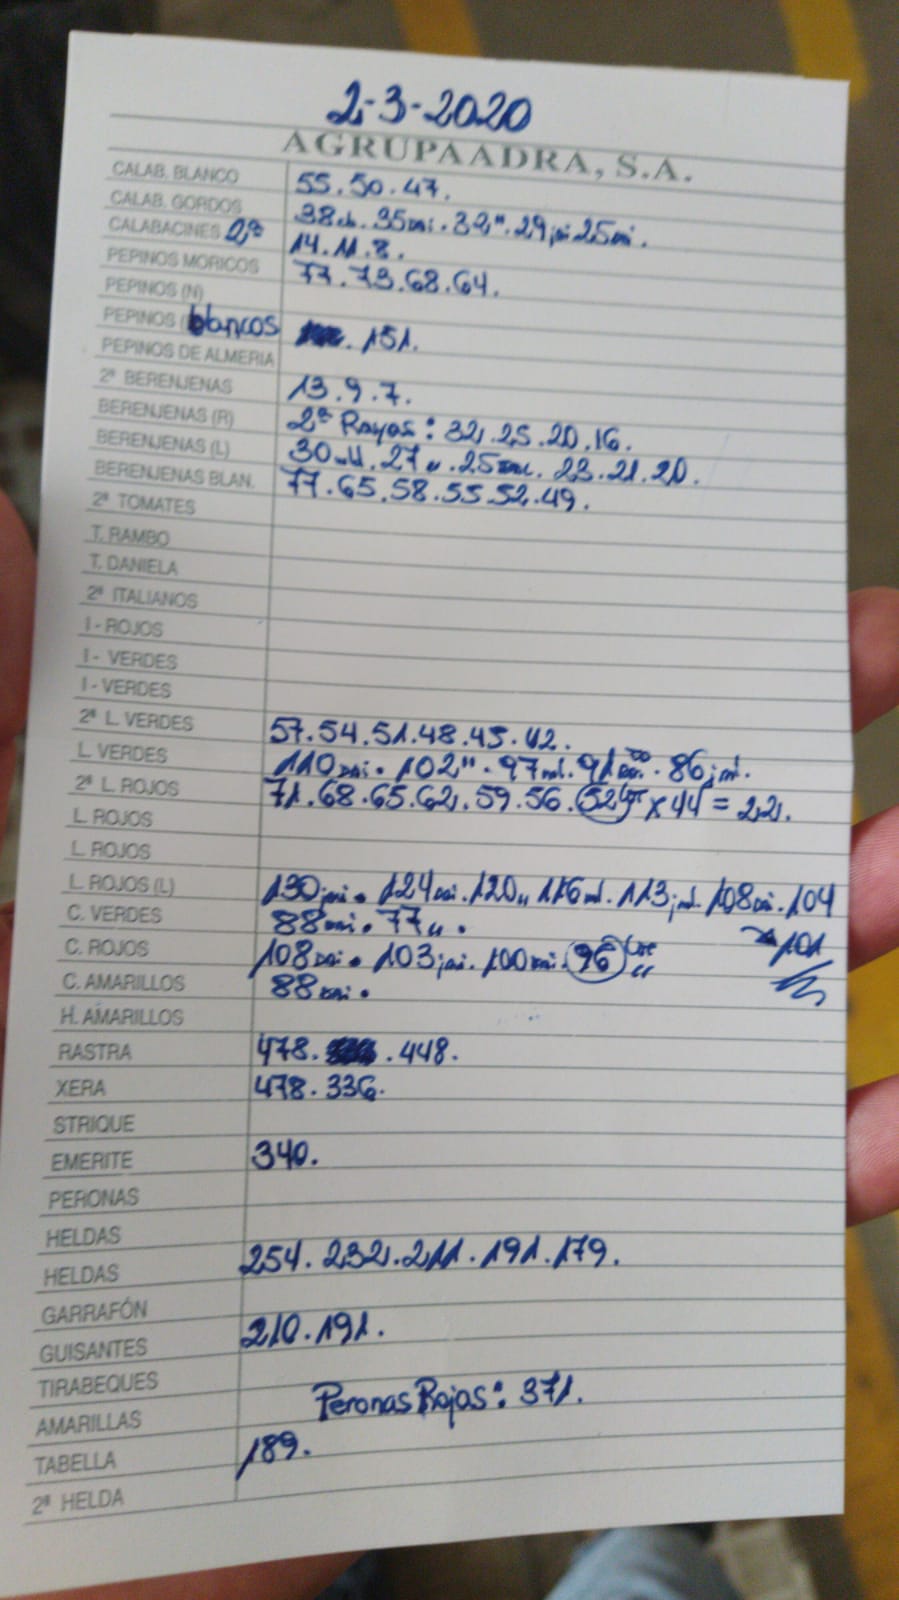 2-3-2020
AGRUPAADRA, S.A.
CALAB. BLANCO 55.50.47.
CALAB. GORDOS 38 35 32" 29 25
CALABACINES 2ª 14.11.8.
PEPINOS MORICOS 77.73.68.64.
PEPINOS (N)
PEPINOS blancos 151.
PEPINOS DE ALMERIA
2ª BERENJENAS 13.9.7.
BERENJENAS (R) 2ª Rayas: 32.25.20.16.
BERENJENAS (L) 30 27 25 23.21.20.
BERENJENAS BLAN. 77.65.58.55.52.49.
2ª TOMATES
T. RAMBO
T. DANIELA
2ª ITALIANOS
I - ROJOS
I - VERDES
I - VERDES
2ª L. VERDES 57.54.51.48.45.42.
L. VERDES 110 102" 97 91 86
2ª L. ROJOS 71.68.65.62.59.56.52 x 44 = 22.
L. ROJOS
L. ROJOS
L. ROJOS (L) 130 124 120 116 113 108 104
101
C. VERDES 88 77
C. ROJOS 108 103 100 96
C. AMARILLOS 88
H. AMARILLOS
RASTRA 478. 448.
XERA 478.336.
STRIQUE
EMERITE 340.
PERONAS
HELDAS
HELDAS 254.232.211.191.179.
GARRAFÓN
GUISANTES 210.191.
TIRABEQUES
AMARILLAS Peronas Rojas: 371.
TABELLA 189.
2ª HELDA